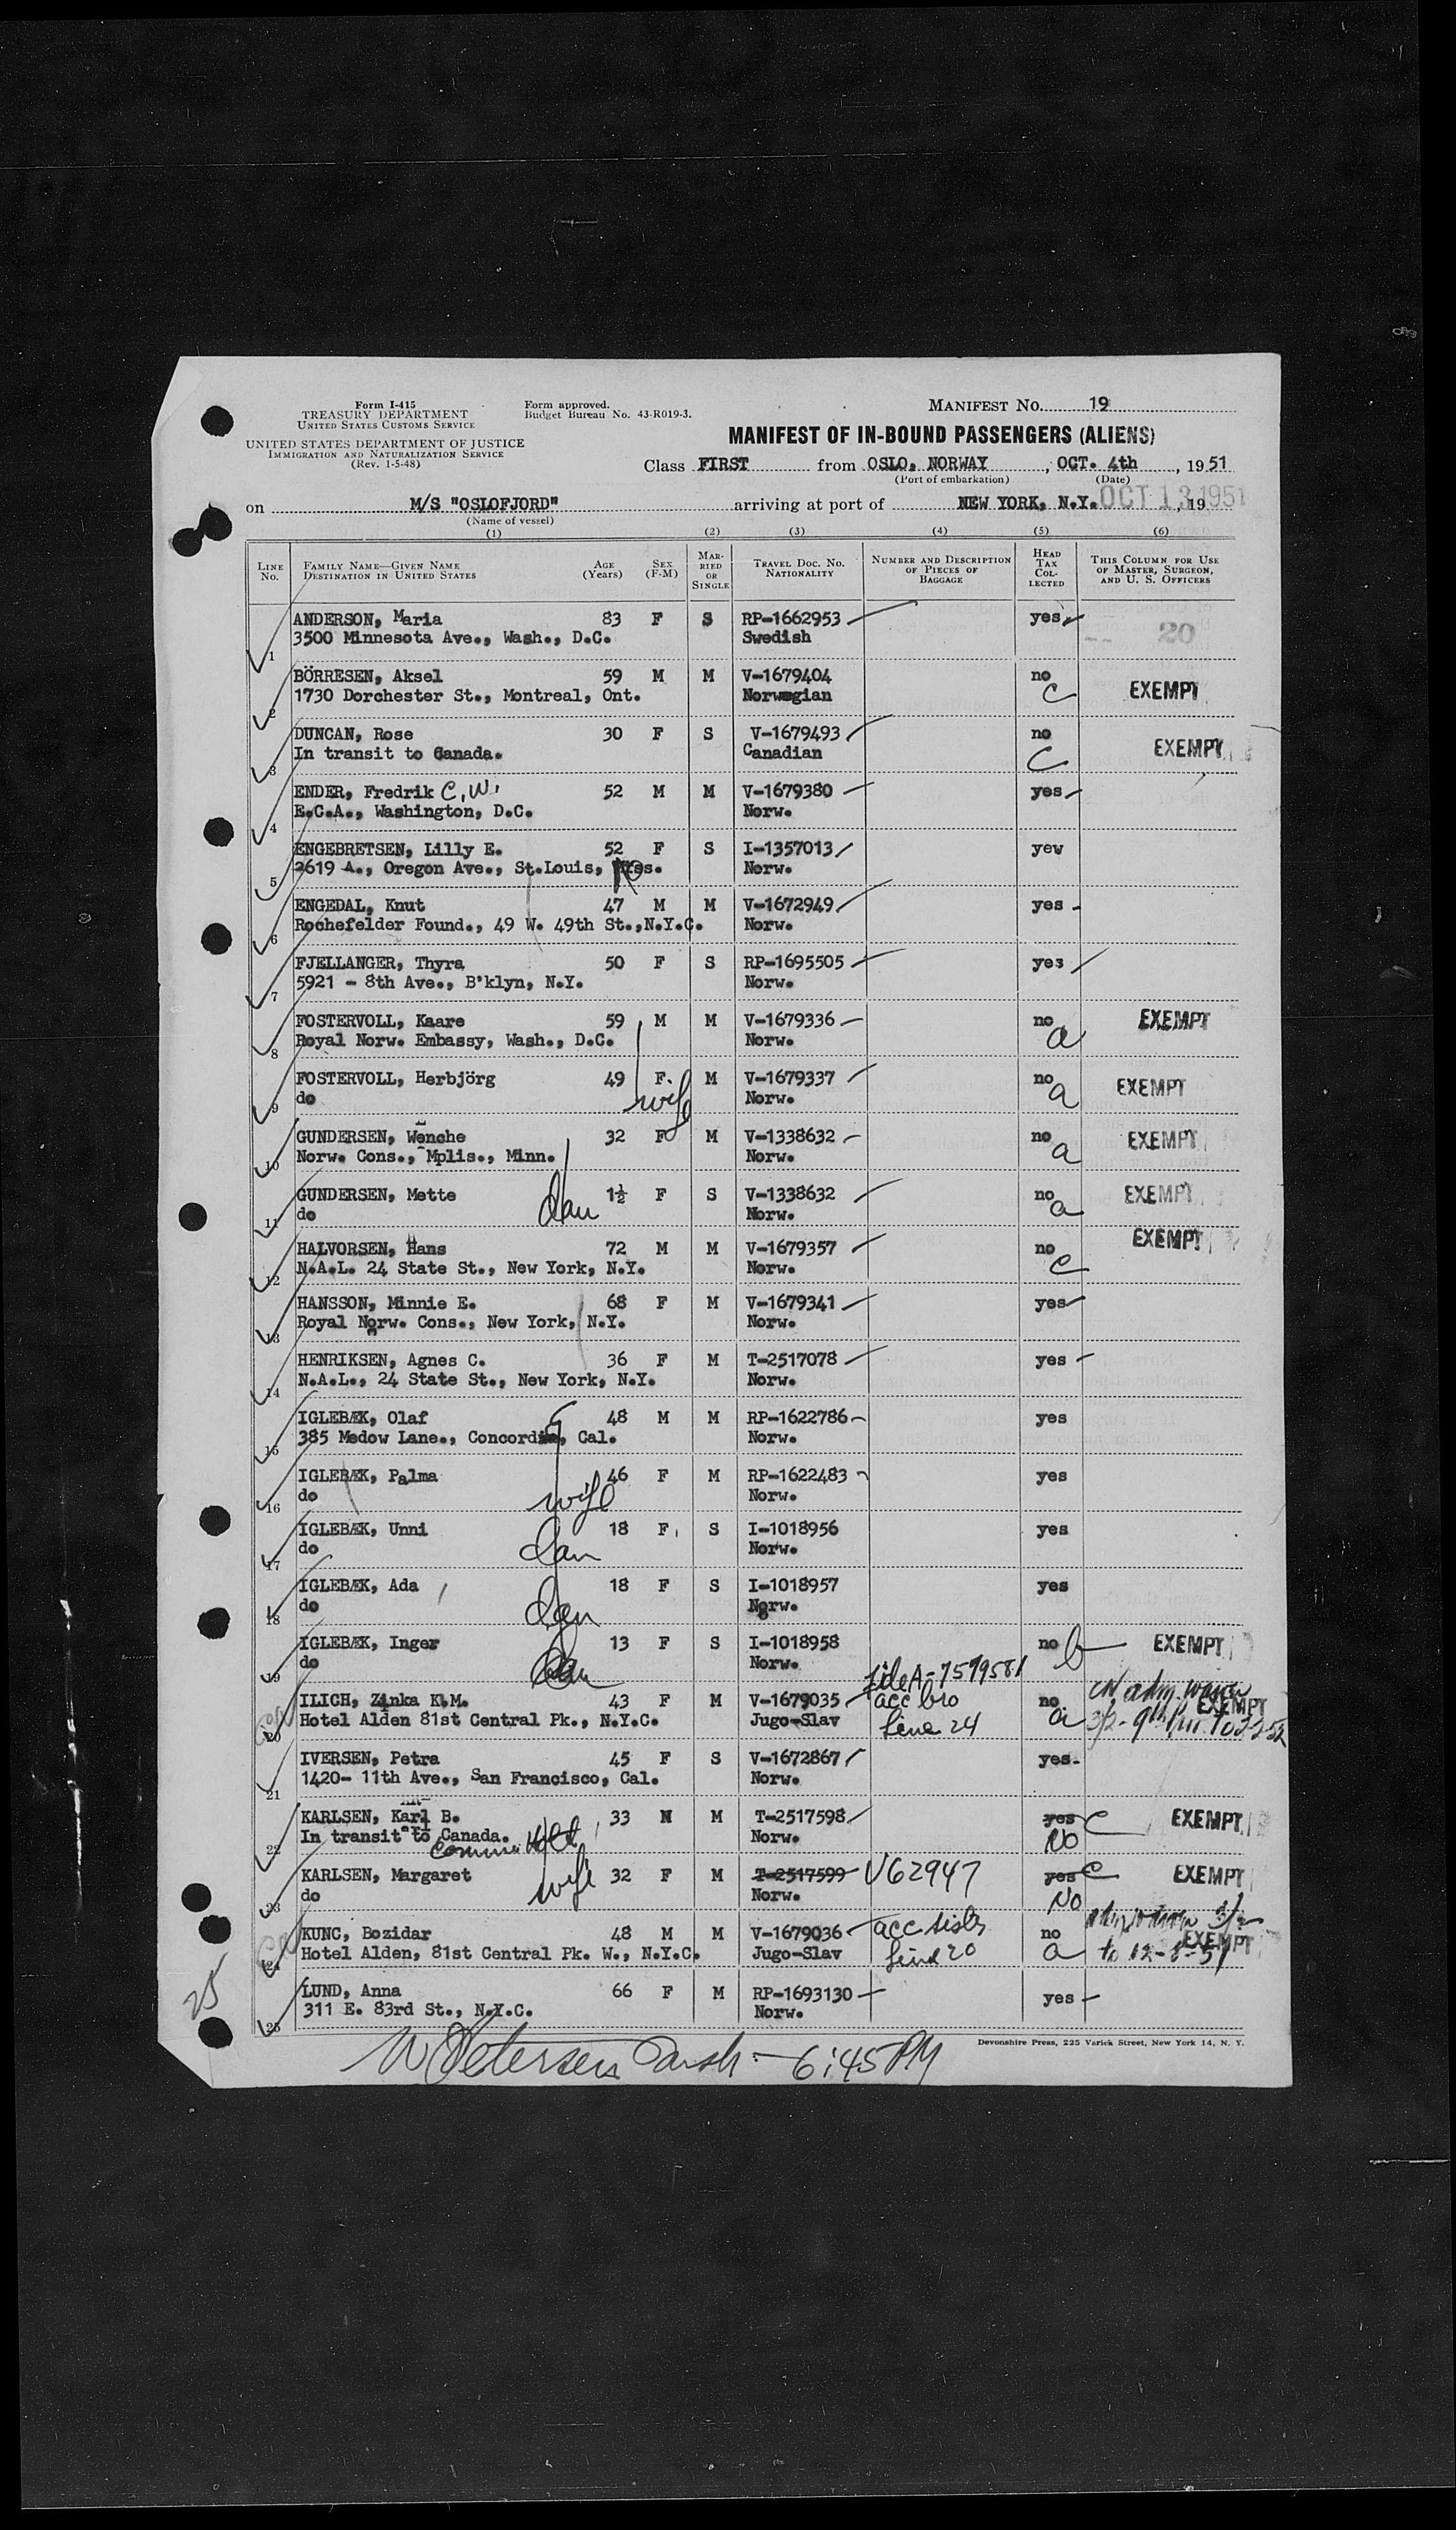 Form I-415
TREASURY DEPARTMENT
UNITED STATES CUSTOMS SERVICE
UNITED STATES DEPARTMENT OF JUSTICE
IMMIGRATION AND NATURALIZATION SERVICE
(Rev. 1-5-48)
Form approved.
Budget Bureau No. 43-R019-3.
MANIFEST NO. 19
MANIFEST OF IN-BOUND PASSENGERS (ALIENS)
Class FIRST from OSLO, NORWAY, OCT. 4th, 1951
(Port of embarkation) (Date)
on M/S "OSLOFJORD" arriving at port of NEW YORK, N.Y. OCT 13 1951, 19
(Name of vessel)
(1) (2) (3) (4) (5) (6)
LINE No. FAMILY NAME—GIVEN NAME DESTINATION IN UNITED STATES AGE (Years) SEX (F-M) MARRIED OR SINGLE TRAVEL DOC. NO. NATIONALITY NUMBER AND DESCRIPTION OF PIECES OF BAGGAGE HEAD TAX COLLECTED THIS COLUMN FOR USE OF MASTER, SURGEON, AND U. S. OFFICERS
ANDERSON, Maria 83 F S RP-1662953 yes
1 3500 Minnesota Ave., Wash., D.C. Swedish 20
BÖRRESEN, Aksel 59 M M V-1679404 no
2 1730 Dorchester St., Montreal, Ont. Norwegian C EXEMPT
DUNCAN, Rose 30 F S V-1679493 no
3 In transit to Canada. Canadian C EXEMPT
ENDER, Fredrik C.W. 52 M M V-1679380 yes
4 E.C.A., Washington, D.C. Norw.
ENGEBRETSEN, Lilly E. 52 F S I-1357013 yew
5 2619 A., Oregon Ave., St.Louis, Norw.
ENGEDAL, Knut 47 M M V-1672949 yes
6 Rochefelder Found., 49 W. 49th St.,N.Y.C. Norw.
FJELLANGER, Thyra 50 F S RP-1695505 yes
7 5921 - 8th Ave., B'klyn, N.Y. Norw.
FOSTERVOLL, Kaare 59 M M V-1679336 no EXEMPT
8 Royal Norw. Embassy, Wash., D.C. Norw. a
FOSTERVOLL, Herbjörg 49 F. M V-1679337 no EXEMPT
9 do wife Norw. a
GUNDERSEN, Wenche 32 F M V-1338632 no EXEMPT
10 Norw. Cons., Mplis., Minn. Norw. a
GUNDERSEN, Mette 1½ F S V-1338632 no EXEMPT
11 do dau Norw. a
HALVORSEN, Hans 72 M M V-1679357 no EXEMPT
12 N.A.L. 24 State St., New York, N.Y. Norw. C
HANSSON, Minnie E. 68 F M V-1679341 yes
13 Royal Norw. Cons., New York, N.Y. Norw.
HENRIKSEN, Agnes C. 36 F M T-2517078 yes
14 N.A.L., 24 State St., New York, N.Y. Norw.
IGLEBÆK, Olaf 48 M M RP-1622786 yes
15 385 Medow Lane., Concordia, Cal. Norw.
IGLEBÆK, Palma 46 F M RP-1622483 yes
16 do wife Norw.
IGLEBÆK, Unni 18 F S I-1018956 yes
17 do dau Norw.
IGLEBÆK, Ada 18 F S I-1018957 yes
18 do dau Norw.
IGLEBÆK, Inger 13 F S I-1018958 no b EXEMPT
19 do dau Norw. file A-7579581
ILICH, Zinka K.M. 43 F M V-1679035 acc bro no EXEMPT
20 Hotel Alden 81st Central Pk., N.Y.C. Jugo-Slav line 24 a
IVERSEN, Petra 45 F S V-1672867 yes
21 1420- 11th Ave., San Francisco, Cal. Norw.
KARLSEN, Karl B. 33 M M T-2517598 yes C EXEMPT
22 In transit to Canada. Norw. No
KARLSEN, Margaret wife 32 F M T-2517599 V62947 yes C EXEMPT
23 do Norw. No
KUNC, Bozidar 48 M M V-1679036 acc sister no EXEMPT
24 Hotel Alden, 81st Central Pk. W., N.Y.C. Jugo-Slav line 20 a to 12-
LUND, Anna 66 F M RP-1693130 yes
25 311 E. 83rd St., N.Y.C. Norw.
25
Devonshire Press, 225 Varick Street, New York 14, N. Y.
Petersen 6:45 PM